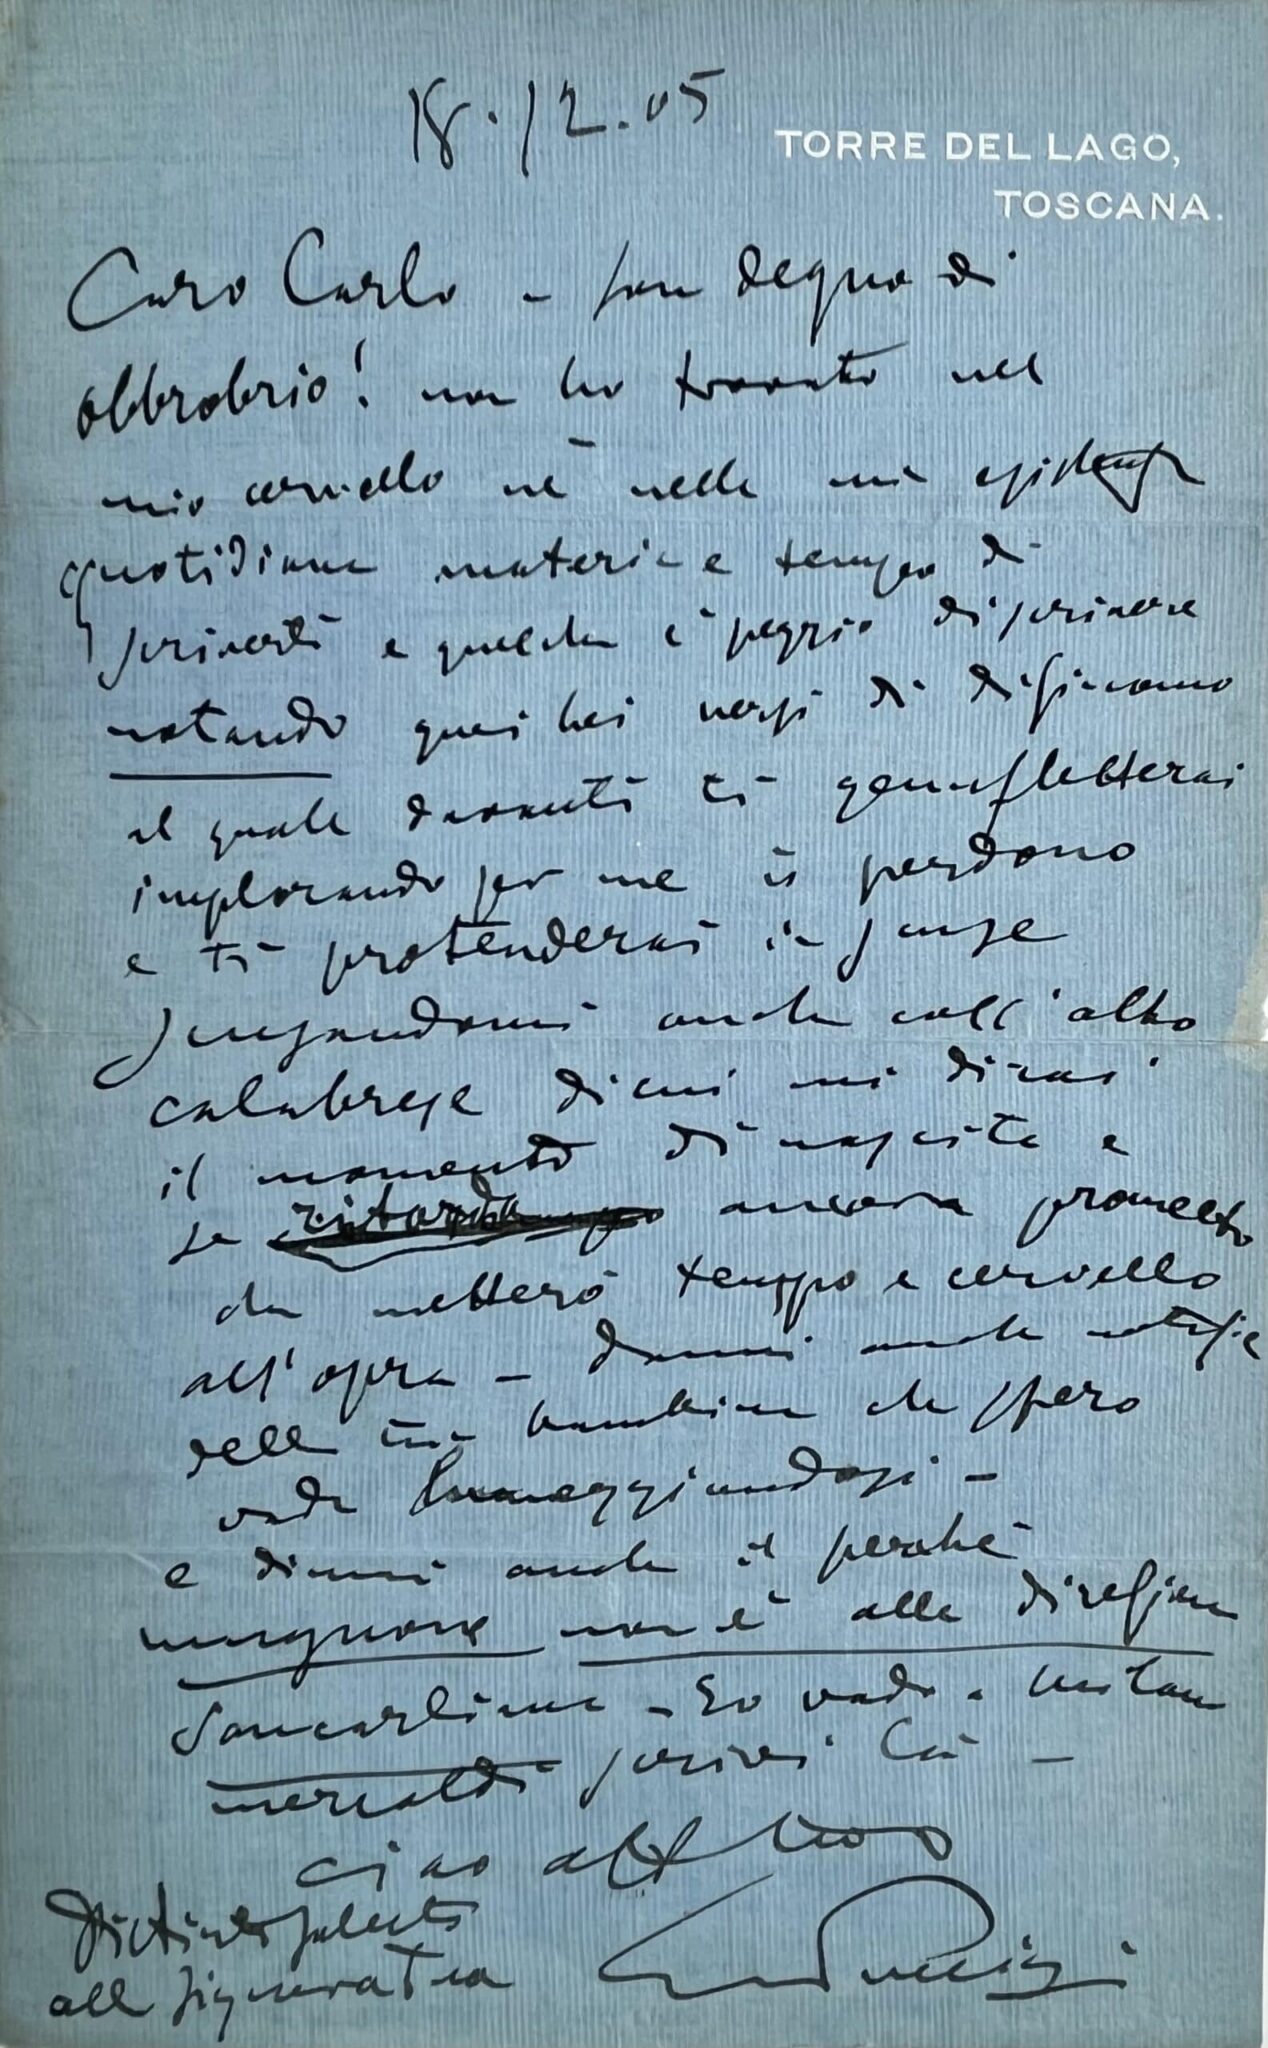 18.12.05
TORRE DEL LAGO,
TOSCANA.
Caro Carlo - son degno di
obbrobrio! non ho trovato nel
mio cervello nè nella mia esistenza
quotidiana materia e tempo di
scriverti e quel che è peggio di scrivere
notando quei bei versi di di Giacomo
al quale davanti ti genufletterai
implorando per me il perdono
e ti protenderai in scuse
scusandomi anche coll'altro
calabrese di cui mi dirai
il momento di nascita e
se ritarda ancora prometto
che metterò tempo e cervello
all'opera - dammi anche notizie
della tua bambina che spero
vada
e dimmi anche il perchè
mugnone non è alla direzione
Sancarliana - Io vado a milano
mercoldì scrivi là -
ciao aff tuo
GPuccini
Distinti saluti
alla Signora tua